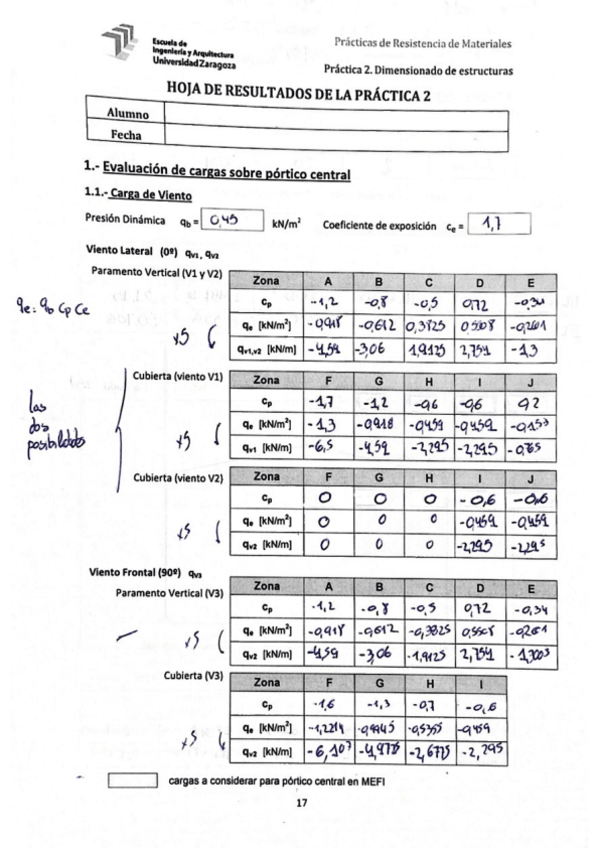 Escuela de
Ingeniería y Arquitectura
Universidad Zaragoza
Prácticas de Resistencia de Materiales
Práctica 2. Dimensionado de estructuras
HOJA DE RESULTADOS DE LA PRÁCTICA 2
Alumno
Fecha
1.- Evaluación de cargas sobre pórtico central
1.1.- Carga de Viento
Presión Dinámica qb = 0,45 kN/m² Coeficiente de exposición ce = 1,7
Viento Lateral (0º) qv1, qv2
Paramento Vertical (V1 y V2)
Zona A B C D E
cp -1,2 -0,8 -0,5 0,72 -0,34
qe: qb Cp Ce
qe [kN/m²] -0,918 -0,612 0,3825 0,5508 -0,2601
x5
qv1,v2 [kN/m] -4,59 -3,06 1,9125 2,754 -1,3
Cubierta (viento V1)
Zona F G H I J
cp -1,7 -1,2 -0,6 -0,6 0,2
las
dos
posibilidades
qe [kN/m²] -1,3 -0,918 -0,459 -0,459 -0,153
x5
qv1 [kN/m] -6,5 -4,59 -2,295 -2,295 -0,765
Cubierta (viento V2)
Zona F G H I J
cp 0 0 0 -0,6 -0,6
qe [kN/m²] 0 0 0 -0,459 -0,459
x5
qv2 [kN/m] 0 0 0 -2,295 -2,295
Viento Frontal (90º) qv3
Paramento Vertical (V3)
Zona A B C D E
cp -1,2 -0,8 -0,5 0,72 -0,34
qe [kN/m²] -0,918 -0,612 -0,3825 0,5508 -0,2601
x5
qv2 [kN/m] -4,59 -3,06 -1,9125 2,754 -1,3005
Cubierta (V3)
Zona F G H I
cp -1,6 -1,3 -0,7 -0,6
qe [kN/m²] -1,2214 -0,9945 -0,5355 -0,459
x5
qv2 [kN/m] -6,107 -4,973 -2,6775 -2,295
cargas a considerar para pórtico central en MEFI
17